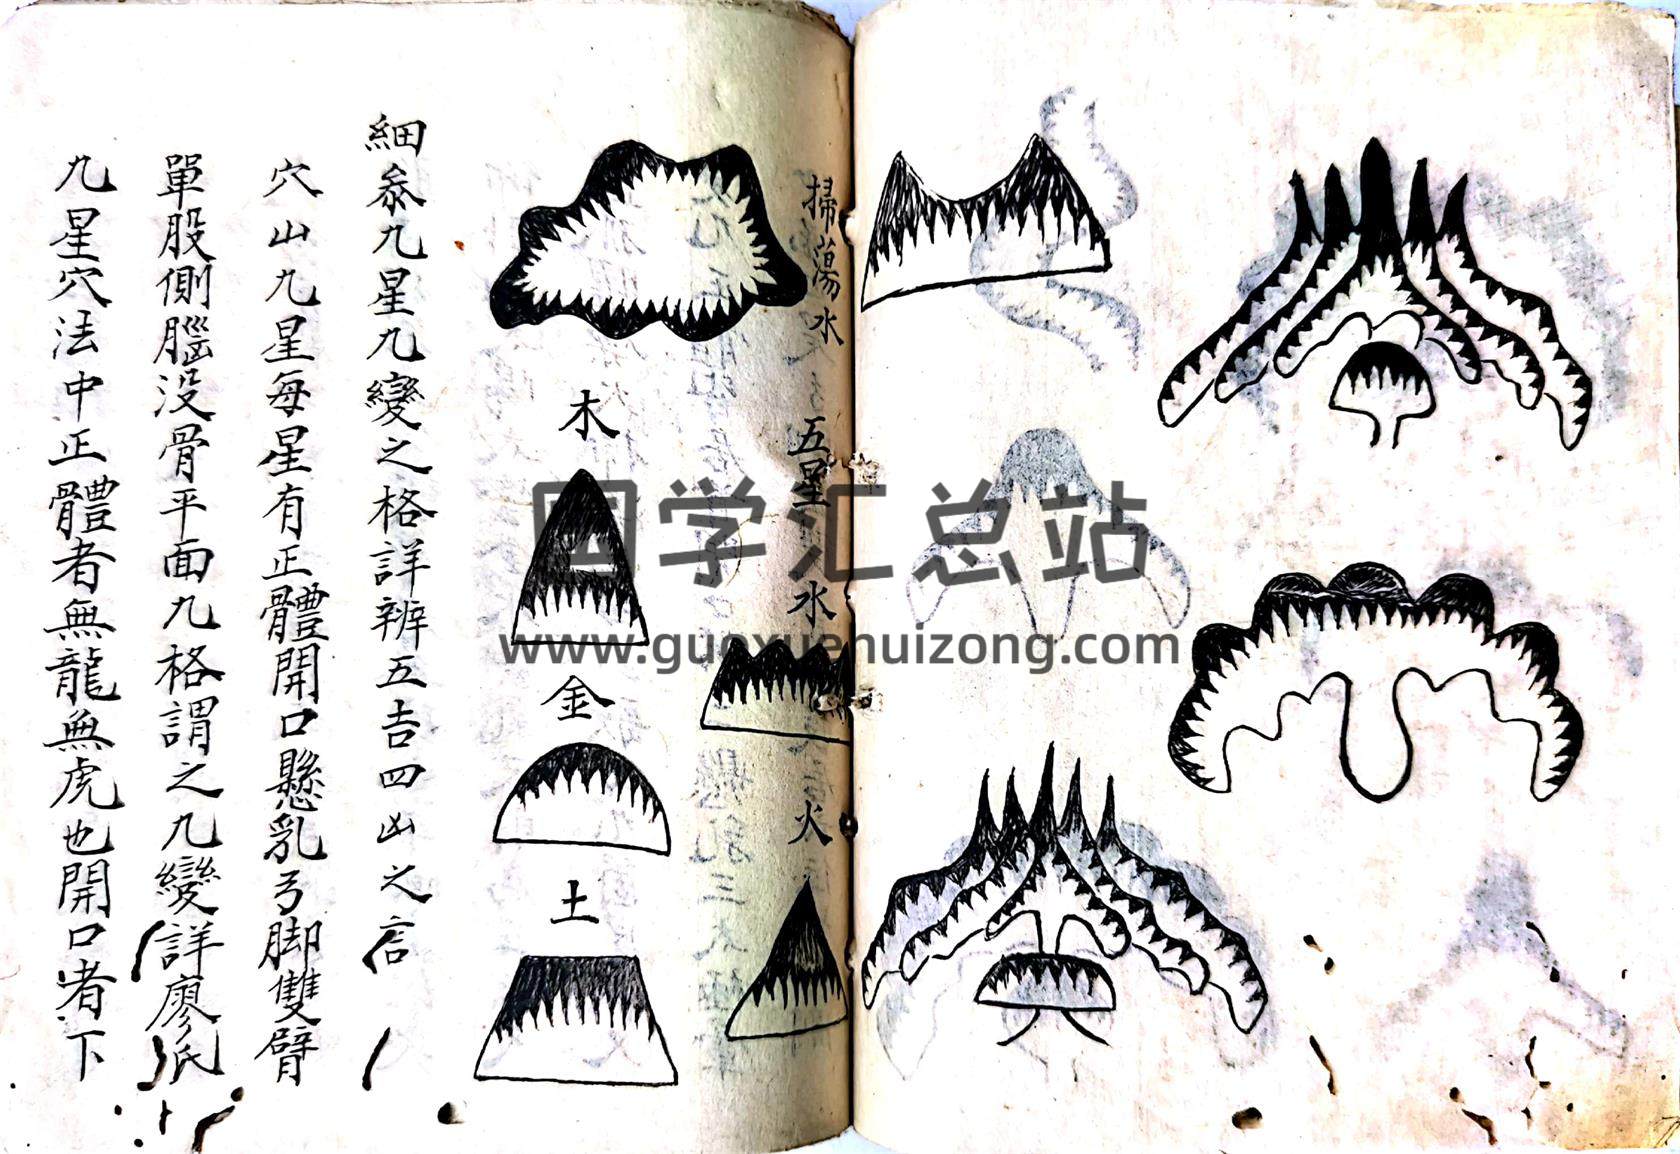 掃蕩水
五星
水
火
木
金
土
細叅九星九變之格詳辨五吉四凶之言
穴山九星每星有正體開口懸乳弓脚雙臂
單股側腦没骨平面九格謂之九變詳廖氏
九星穴法中正體者無龍無虎也開口者下
国学汇总站
www.guoxuehuizong.com